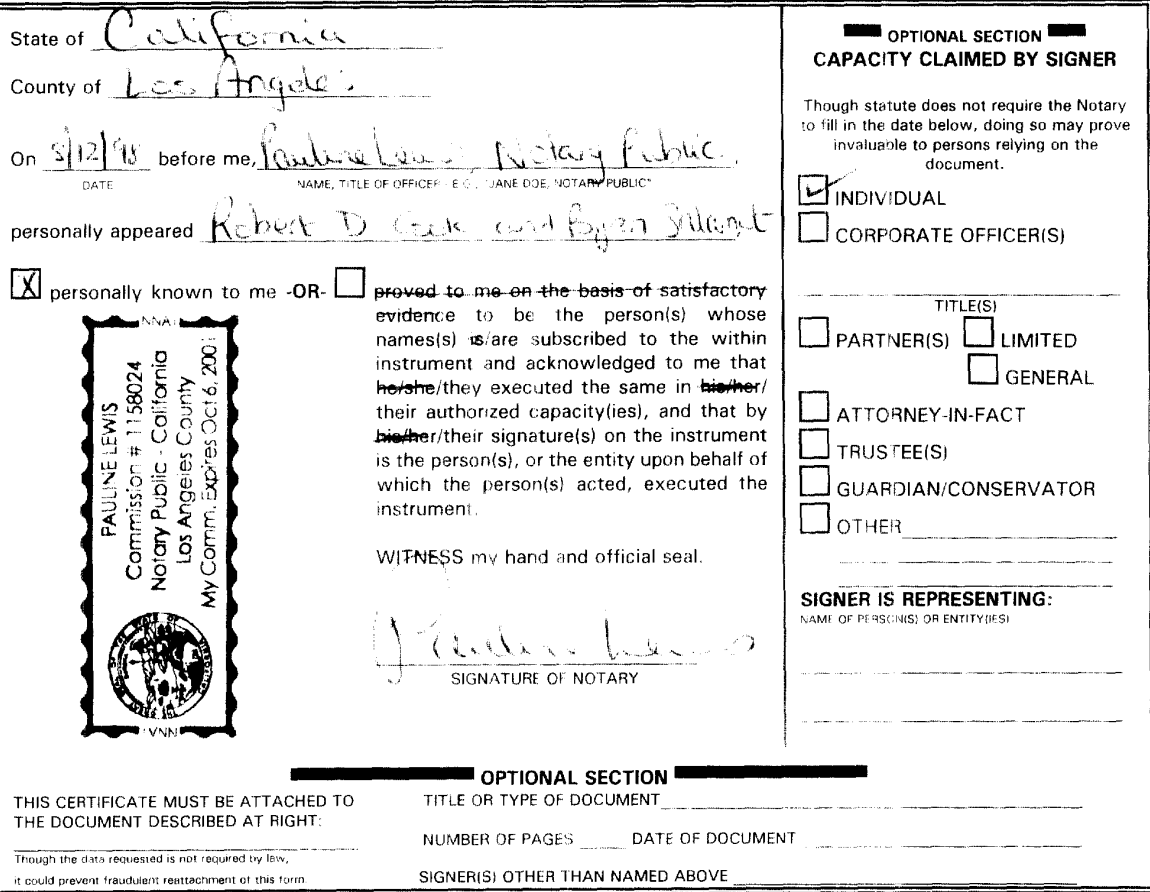 State of California
County of Los Angeles
On 5/12/98 before me, Pauline Lewis, Notary Public
DATE
NAME, TITLE OF OFFICER - E.G., "JANE DOE, NOTARY PUBLIC"
personally appeared Robert D and Byron
X personally known to me -OR- proved to me on the basis of satisfactory
evidence to be the person(s) whose
names(s) is/are subscribed to the within
instrument and acknowledged to me that
he/she/they executed the same in his/her/
their authorized capacity(ies), and that by
his/her/their signature(s) on the instrument
is the person(s), or the entity upon behalf of
which the person(s) acted, executed the
instrument.
WITNESS my hand and official seal.
Pauline Lewis
SIGNATURE OF NOTARY
NNA
PAULINE LEWIS
Commission # 1158024
Notary Public - California
Los Angeles County
My Comm. Expires Oct 6, 2001
NNA
OPTIONAL SECTION
CAPACITY CLAIMED BY SIGNER
Though statute does not require the Notary
to fill in the date below, doing so may prove
invaluable to persons relying on the
document.
INDIVIDUAL
CORPORATE OFFICER(S)
TITLE(S)
PARTNER(S) LIMITED
GENERAL
ATTORNEY-IN-FACT
TRUSTEE(S)
GUARDIAN/CONSERVATOR
OTHER
SIGNER IS REPRESENTING:
NAME OF PERSON(S) OR ENTITY(IES)
OPTIONAL SECTION
THIS CERTIFICATE MUST BE ATTACHED TO
THE DOCUMENT DESCRIBED AT RIGHT:
Though the data requested is not required by law,
it could prevent fraudulent reattachment of this form.
TITLE OR TYPE OF DOCUMENT
NUMBER OF PAGES DATE OF DOCUMENT
SIGNER(S) OTHER THAN NAMED ABOVE